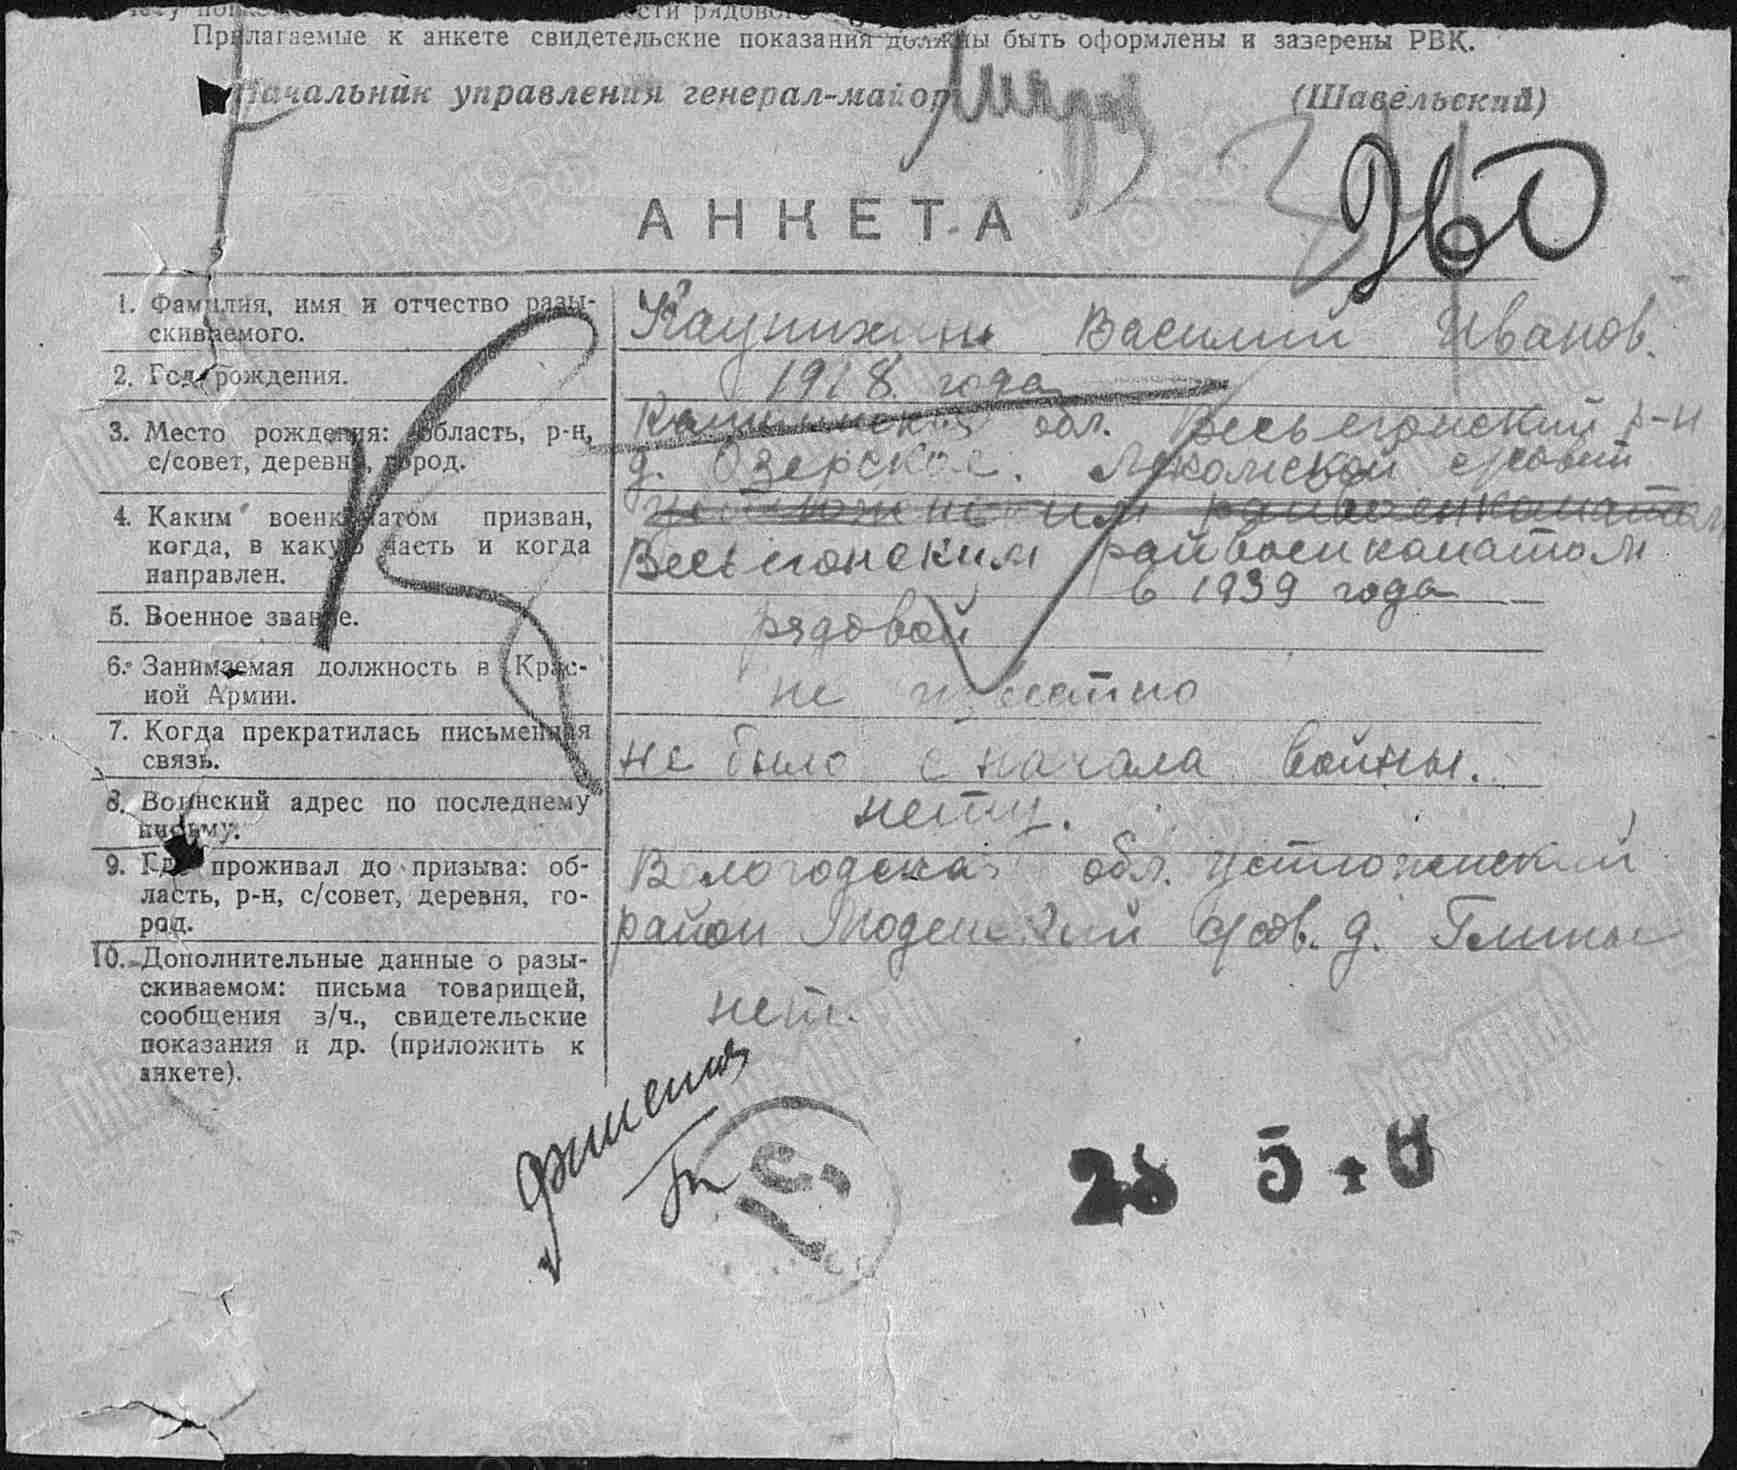 сти рядового
Прилагаемые к анкете свидетельские показания должны быть оформлены и зазерены РВК.
Начальник управления генерал-майор (Шавельский)
960
АНКЕТА
1. Фамилия, имя и отчество разы-
скиваемого.
Василий Иванов.
2. Год рождения.
1918 года
3. Место рождения: область, р-н,
с/совет, деревня, город.
Калининская обл. Весьегонский р-н
д. Озерское. с/совет
4. Каким военкоматом призван,
когда, в какую часть и когда
направлен.
Устюженским райвоенкоматом
Весьегонским райвоенкоматом
в 1939 года
5. Военное звание.
рядовой
6. Занимаемая должность в Крас-
ной Армии.
не известно
7. Когда прекратилась письменная
связь.
не было с начала войны.
8. Воинский адрес по последнему
письму.
нету.
9. Где проживал до призыва: об-
ласть, р-н, с/совет, деревня, го-
род.
Вологодская обл. Устюженский
район Моденский с/сов. д. Глины
10. Дополнительные данные о разы-
скиваемом: письма товарищей,
сообщения з/ч., свидетельские
показания и др. (приложить к
анкете).
нет.
28 5